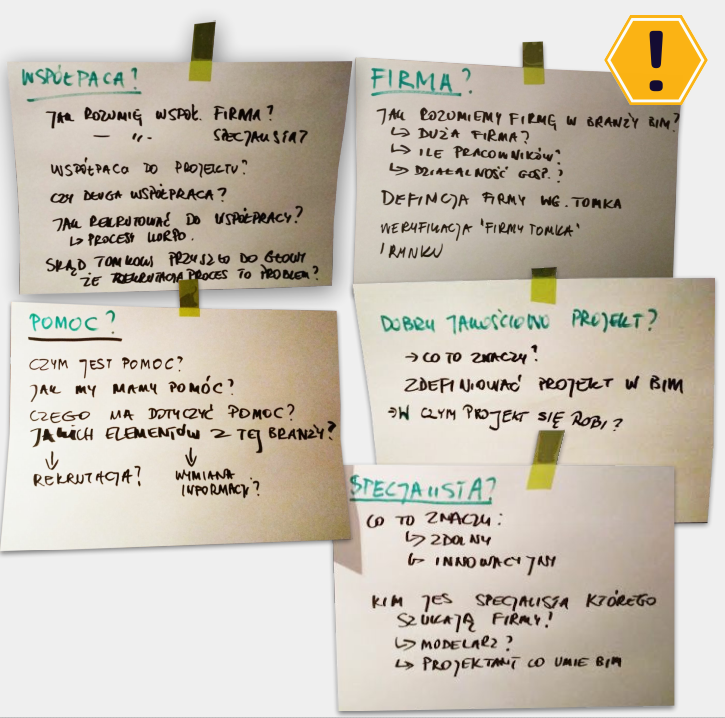 WSPÓŁPACA?
JAK ROZUMIĘ WSPÓŁ. FIRMA?
— " — SPECJALISTA?
WSPÓŁPACA DO PROJEKTU?
CZY DŁUGA WSPÓŁPRACA?
JAK REKRUTOWAĆ DO WSPÓŁPRACY?
↳ PROCESY KORPO.
SKĄD TOMKOWI PRZYSZŁO DO GŁOWY
ŻE REKRUTACJA PROCES TO PROBLEM?
FIRMA?
JAK ROZUMIEMY FIRMĘ W BRANŻY BIM?
↳ DUŻA FIRMA?
↳ ILE PRACOWNIKÓW?
↳ DZIAŁALNOŚĆ GOSP.?
DEFINCJA FIRMY WG. TOMKA
WERYFIKACJA 'FIRMY TOMKA'
I RYNKU
POMOC?
CZYM JEST POMOC?
JAK MY MAMY POMÓC?
CZEGO MA DOTYCZYĆ POMOC?
JAKICH ELEMENTÓW Z TEJ BRANŻY?
↓ ↓
REKRUTACJA? WYMIANA
INFORMACJI?
DOBRY JAKOŚCIOWO PROJEKT?
→ CO TO ZNACZY?
ZDEFINIOWAĆ PROJEKT W BIM
→ W CZYM PROJEKT SIĘ ROBI?
SPECJALISTA?
CO TO ZNACZY:
↳ ZDOLNY
↳ INNOWACYJNY
KIM JES SPECJALISTA KTÓREGO
SZUKAJĄ FIRMY?
↳ MODELARZ?
↳ PROJEKTANT CO UMIE BIM